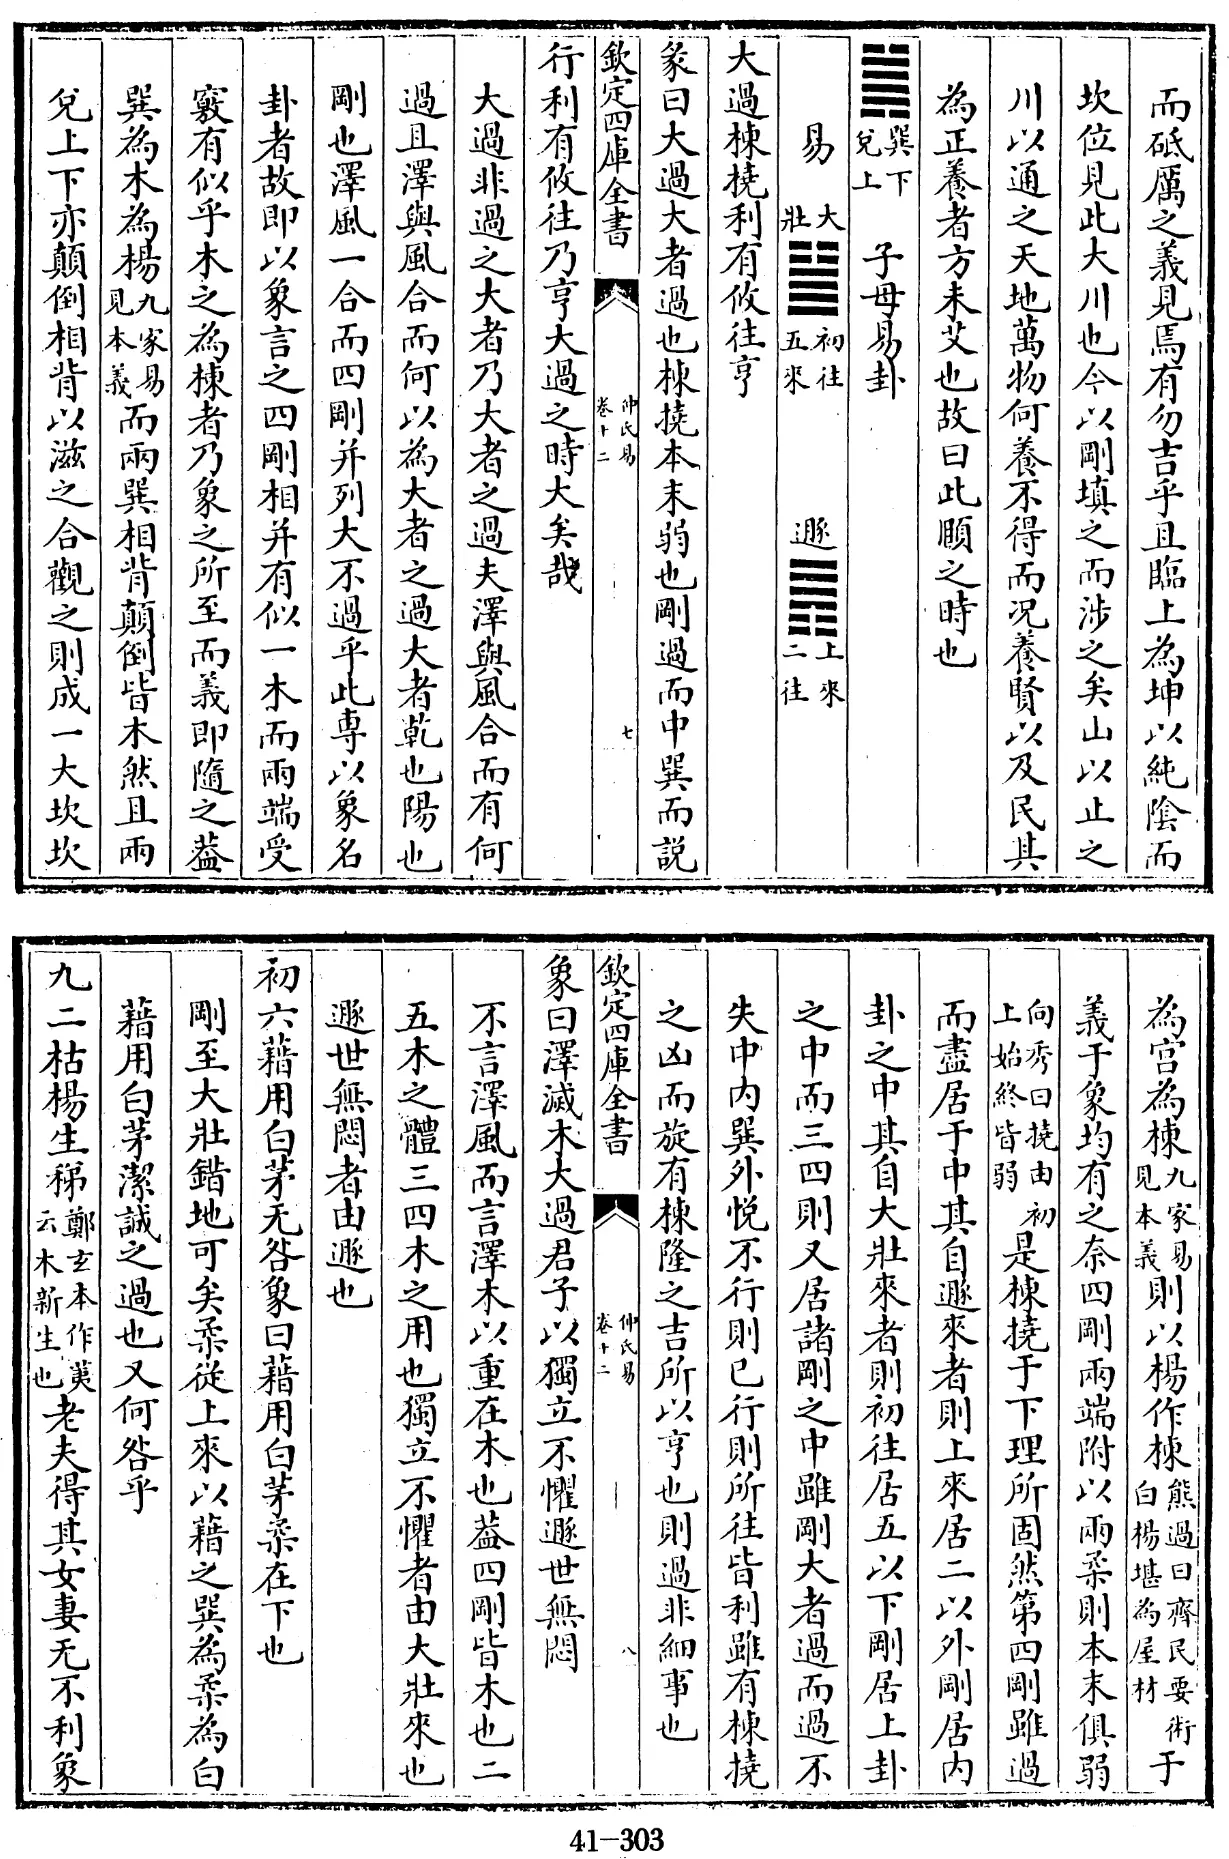 而砥厲之義見焉有勿吉乎且臨上為坤以純陰而
坎位見此大川也今以剛填之而涉之矣山以止之
川以通之天地萬物何養不得而况養賢以及民其
為正養者方未艾也故曰此頤之時也
巽下兌上 子母易卦
易 大壯 初往五來 遯 上來二往
大過棟橈利有攸往亨
彖曰大過大者過也棟橈本末弱也剛過而中巽而說
欽定四庫全書 仲氏易卷十二 七
行利有攸往乃亨大過之時大矣哉
大過非過之大者乃大者之過夫澤與風合而有何
過且澤與風合而何以為大者之過大者乾也陽也
剛也澤風一合而四剛并列大不過乎此專以象名
卦者故即以象言之四剛相并有似一木而兩端受
竅有似乎木之為棟者乃象之所至而義即隨之蓋
巽為木為楊九家易見本義而兩巽相背顛倒皆木然且兩
兌上下亦顛倒相背以滋之合觀之則成一大坎坎
為宮為棟九家易見本義則以楊作棟熊過曰齊民要術白楊堪為屋材于
義于象均有之奈四剛兩端附以兩柔則本末俱弱
向秀曰橈由初上始終皆弱是棟橈于下理所固然第四剛雖過
而盡居于中其自遯來者則上來居二以外剛居內
卦之中其自大壯來者則初往居五以下剛居上卦
之中而三四則又居諸剛之中雖剛大者過而過不
失中內巽外悅不行則已行則所往皆利雖有棟橈
之凶而旋有棟隆之吉所以亨也則過非細事也
欽定四庫全書 仲氏易卷十二 八
象曰澤滅木大過君子以獨立不懼遯世無悶
不言澤風而言澤木以重在木也蓋四剛皆木也二
五木之體三四木之用也獨立不懼者由大壯來也
遯世無悶者由遯也
初六藉用白茅无咎象曰藉用白茅柔在下也
剛至大壯錯地可矣柔從上來以藉之巽為柔為白
藉用白茅潔誠之過也又何咎乎
九二枯楊生稊鄭玄本作荑云木新生也老夫得其女妻无不利象
41-303